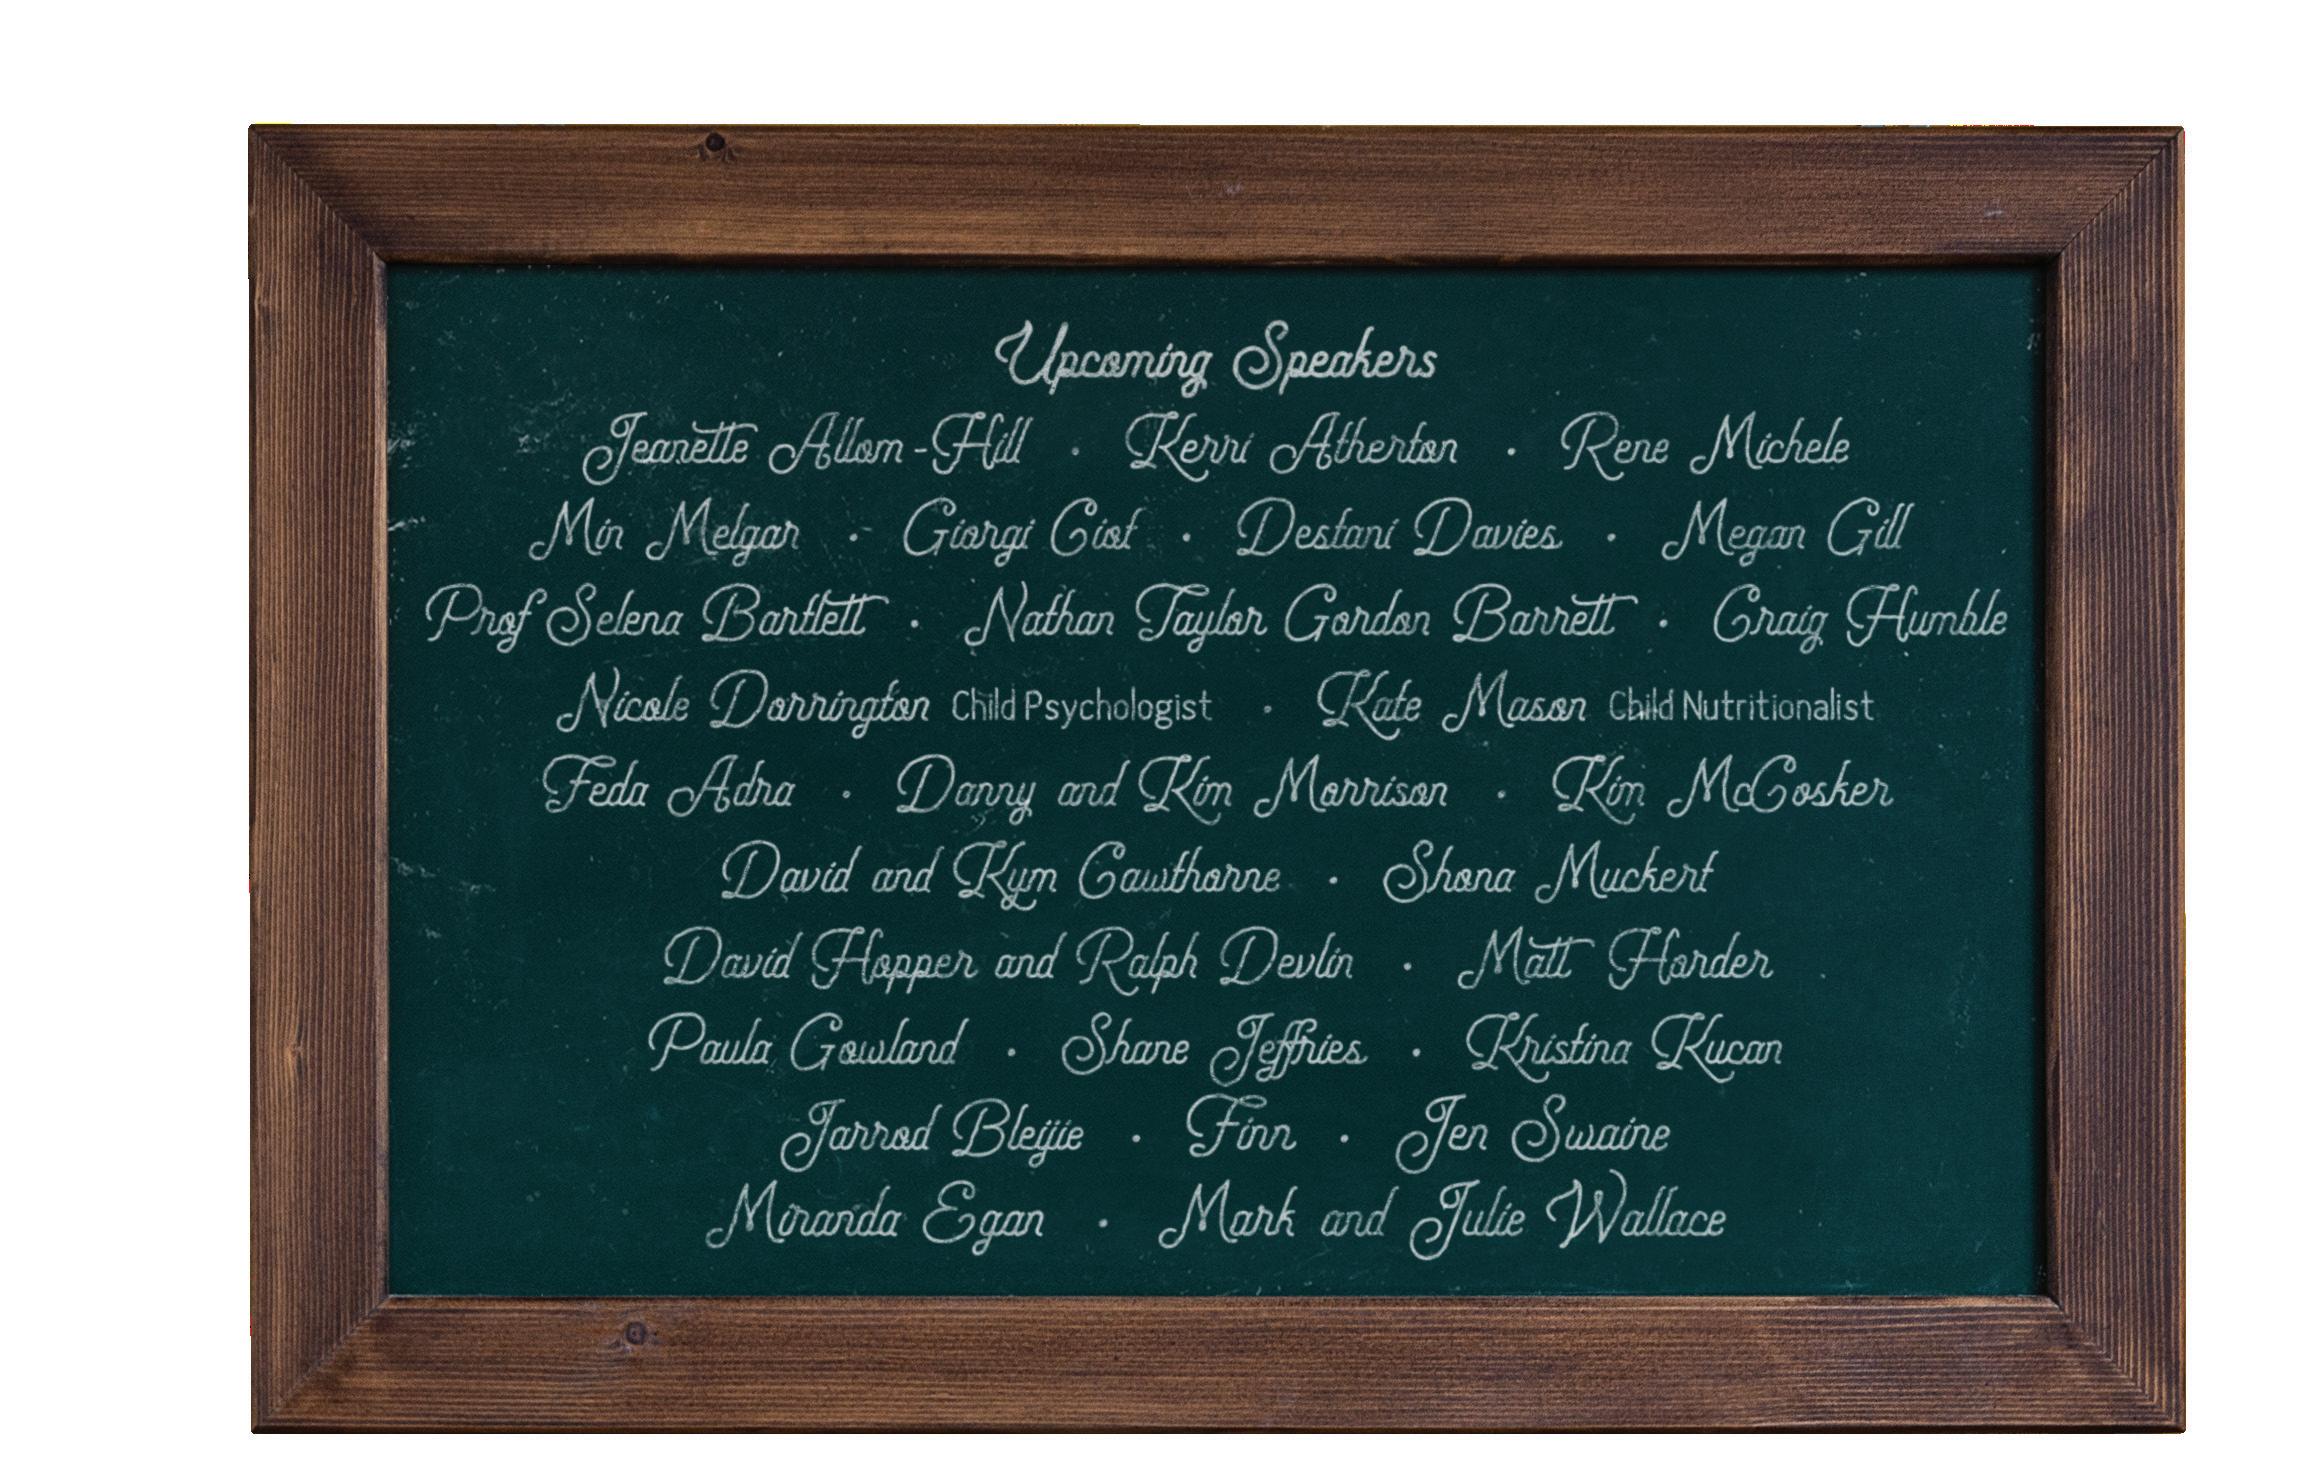 Upcoming Speakers
Jeanette Allom-Hill • Kerri Atherton • Rene Michele
Min Melgar • Giorgi Ciot • Destani Davies • Megan Gill
Prof Selena Bartlett • Nathan Taylor Gordon Barrett • Craig Humble
Nicole Dorrington Child Psychologist • Kate Mason Child Nutritionalist
Feda Adra • Danny and Kim Morrison • Kim McCosker
David and Kym Cawthorne • Shona Muckert
David Hopper and Ralph Devlin • Matt Horder
Paula Gowland • Shane Jeffries • Kristina Kucan
Jarrod Bleijie • Finn • Jen Swaine
Miranda Egan • Mark and Julie Wallace